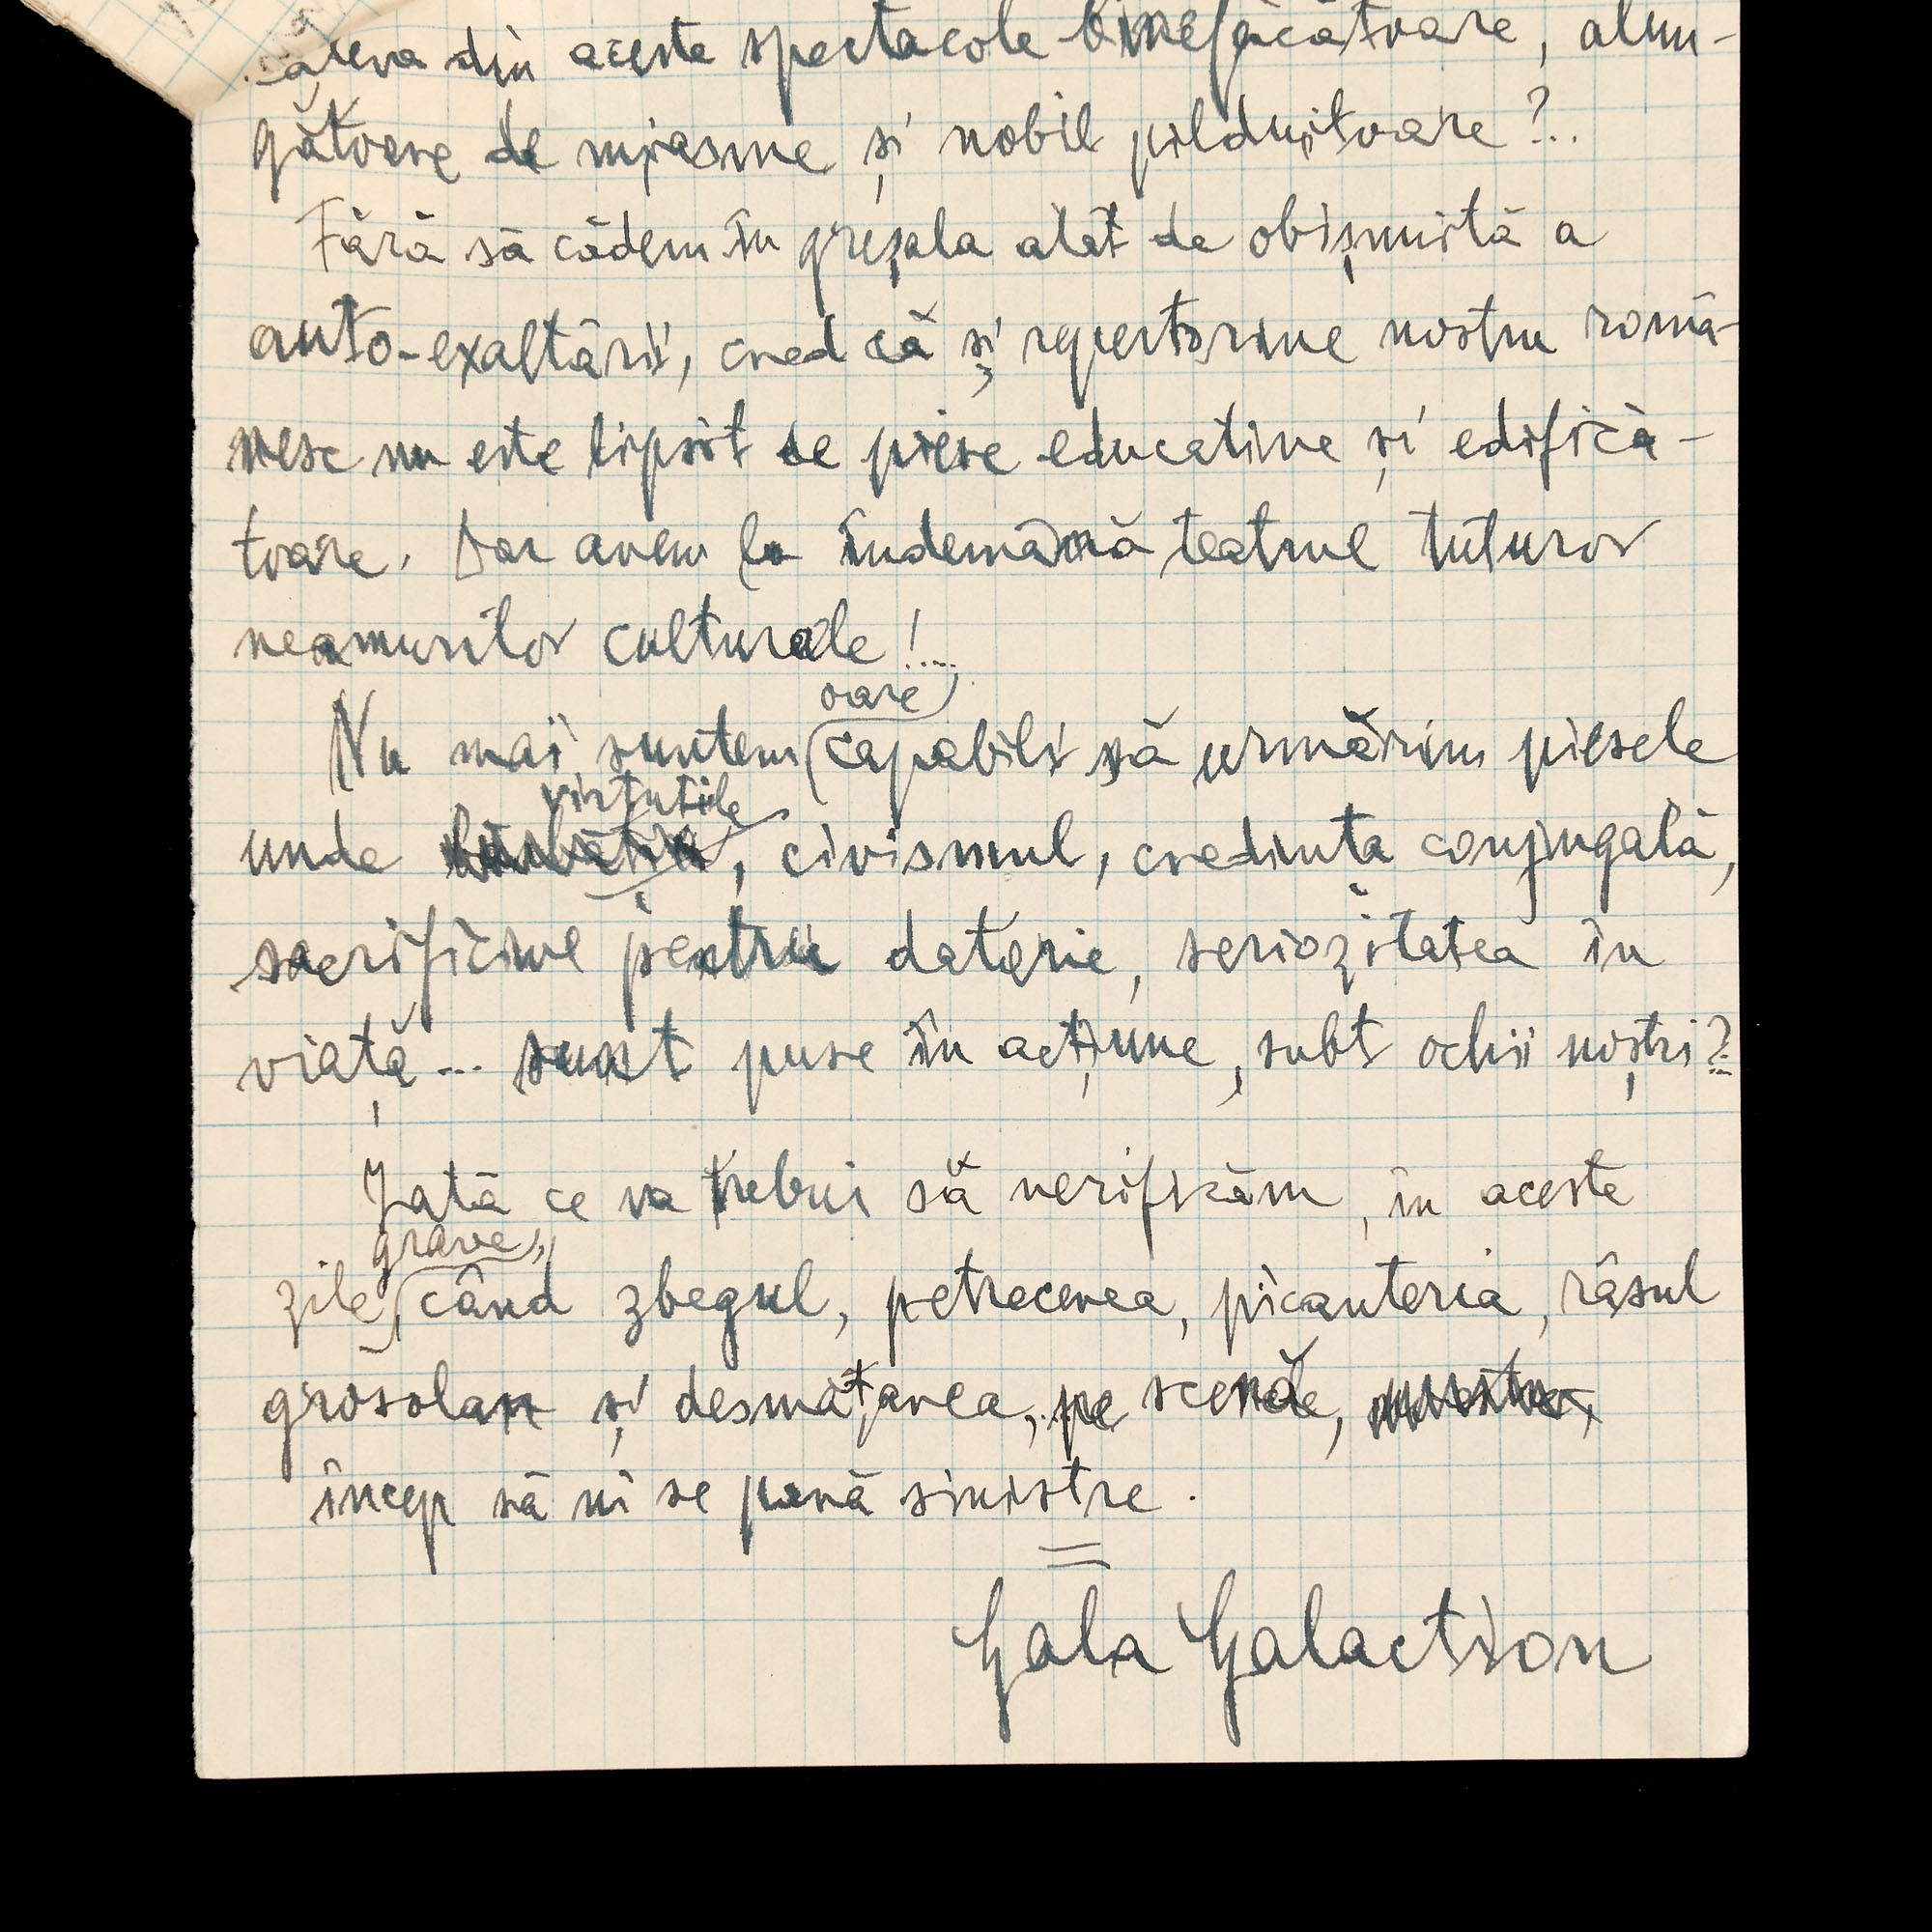 câteva din aceste spectacole binefăcătoare, alun-
gătoare de miasme și nobil pilduitoare?..
Fără să cădem în greșala atât de obișnuită a
auto-exaltării, cred că și repertoriul nostru româ-
nesc nu este lipsit de piese educative și edifică-
toare. Dar avem la îndemână teatrul tuturor
neamurilor culturale!...
oare
Nu mai suntem capabili să urmărim piesele
virtuțile
unde , civismul, credința conjugală,
sacrificiul pentru datorie, seriozitatea în
viață... sunt puse în acțiune, subt ochii noștri?..
Iată ce va trebui să verificăm, în aceste
grave,
zile când zbegul, petrecerea, picanteria, râsul
grosolan și desmățarea, pe scenă,
încep să ni se pară sinistre.
Gala Galaction